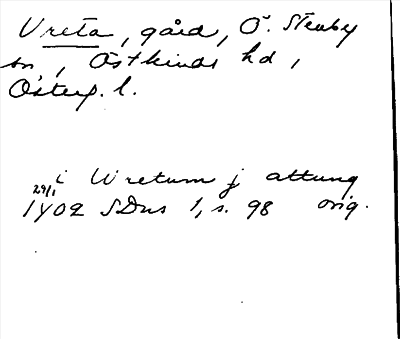 Vreta, gård, Ö. Stenby
sn, Östkinds hd,
Österg. l.
i Wretum j attung
29/1 1402 SDns 1, s. 98 orig.